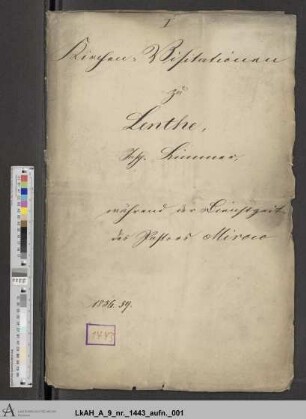 1
Kirchen-Visitationen
zu
Lenthe,
Insp. Limmer,
während der Dienstzeit
des Pastors Mirow
1836. 39.
1443
LkAH_A_9_nr._1443_aufn._001